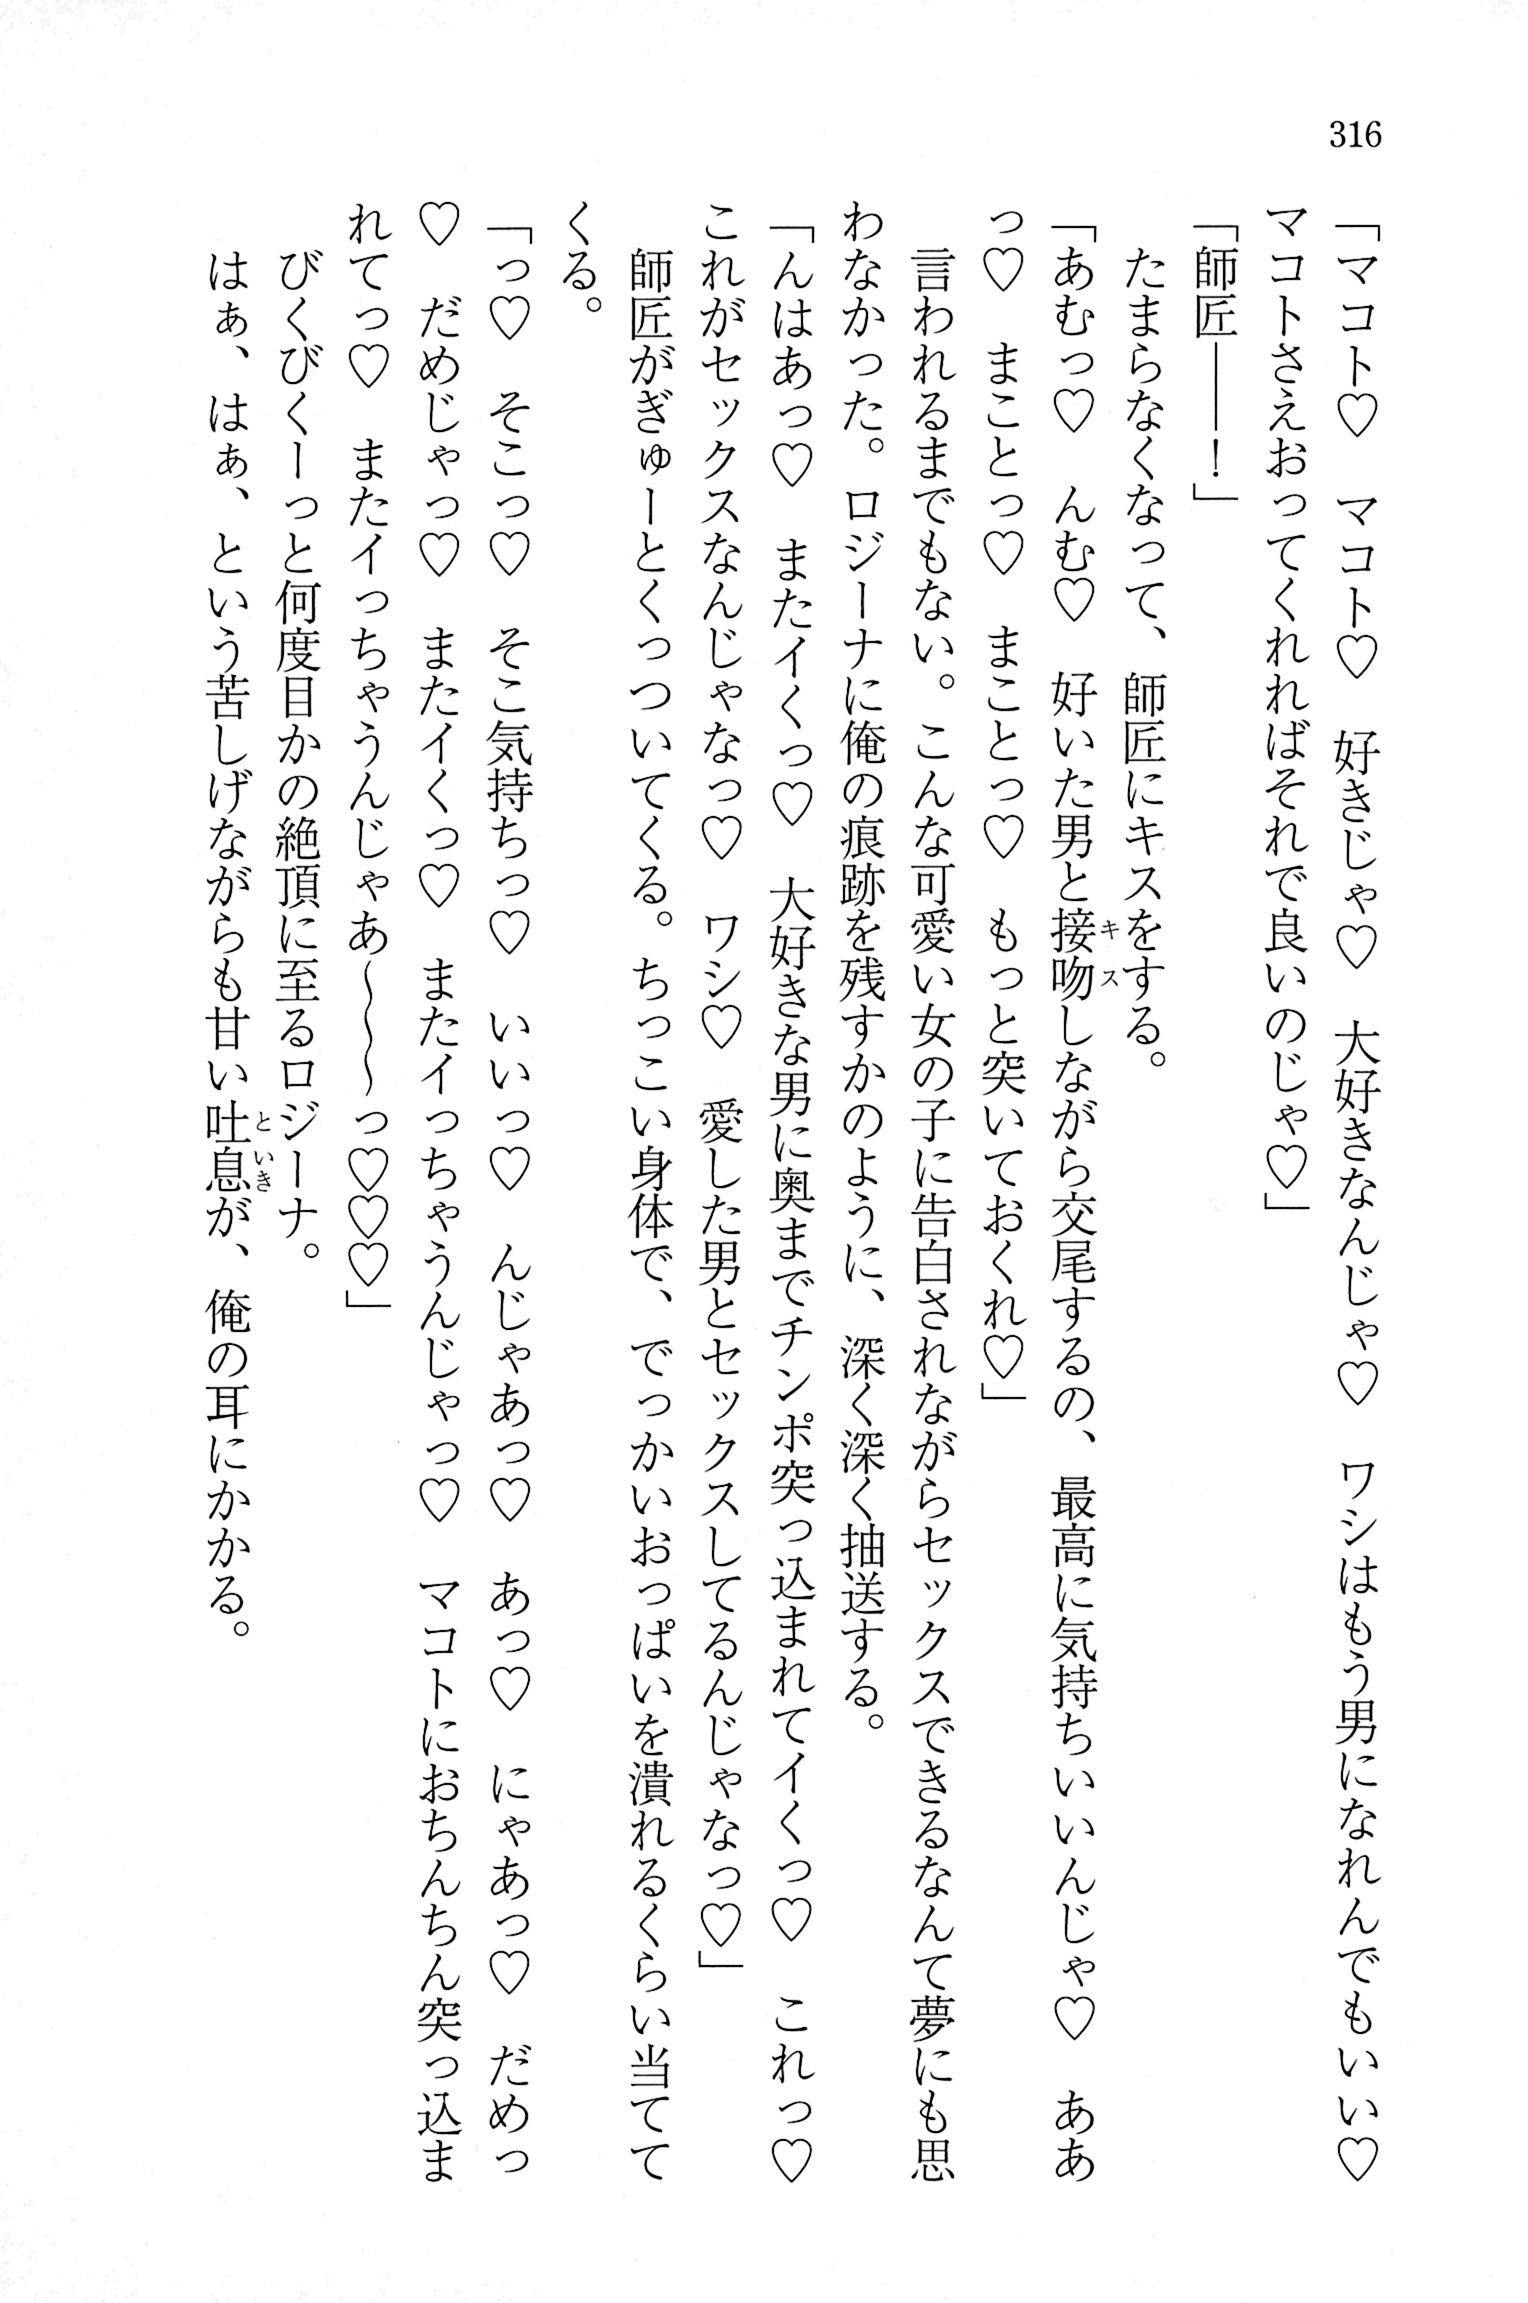 316
「マコト♡　マコト♡　好きじゃ♡　大好きなんじゃ♡　ワシはもう男になれんでもいい♡
マコトさえおってくれればそれで良いのじゃ♡」
「師匠――！」
　たまらなくなって、師匠にキスをする。
「あむっ♡　んむ♡　好いた男と接吻しながら交尾するの、最高に気持ちいいんじゃ♡　ああ
キス
っ♡　まことっ♡　まことっ♡　もっと突いておくれ♡」
　言われるまでもない。こんな可愛い女の子に告白されながらセックスできるなんて夢にも思
わなかった。ロジーナに俺の痕跡を残すかのように、深く深く抽送する。
「んはあっ♡　またイくっ♡　大好きな男に奥までチンポ突っ込まれてイくっ♡　これっ♡
これがセックスなんじゃなっ♡　ワシ♡　愛した男とセックスしてるんじゃなっ♡」
　師匠がぎゅーとくっついてくる。ちっこい身体で、でっかいおっぱいを潰れるくらい当てて
くる。
「っ♡　そこっ♡　そこ気持ちっ♡　いいっ♡　んじゃあっ♡　あっ♡　にゃあっ♡　だめっ
♡　だめじゃっ♡　またイくっ♡　またイっちゃうんじゃっ♡　マコトにおちんちん突っ込ま
れてっ♡　またイっちゃうんじゃあ～～～っ♡♡♡」
　びくびくーっと何度目かの絶頂に至るロジーナ。
　はぁ、はぁ、という苦しげながらも甘い吐息が、俺の耳にかかる。
といき